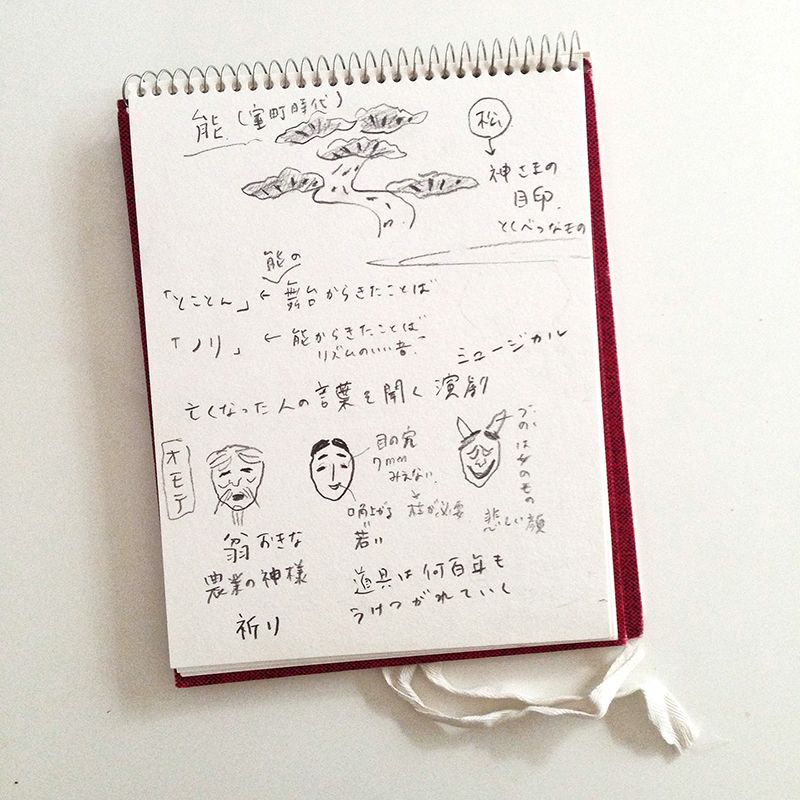 能(室町時代)
松
神さまの
目印
とくべつなもの
能の
「とことん」← 舞台からきたことば
「ノリ」 ← 能からきたことば
リズムのいい音
ミュージカル
亡くなった人の言葉を聞く演劇
オモテ
目の穴
7mm
みえない
柱が必要
口角上がる
若い
つのは女のもの
悲しい顔
翁 おきな
農業の神様
祈り
道具は何百年も
うけつがれていく